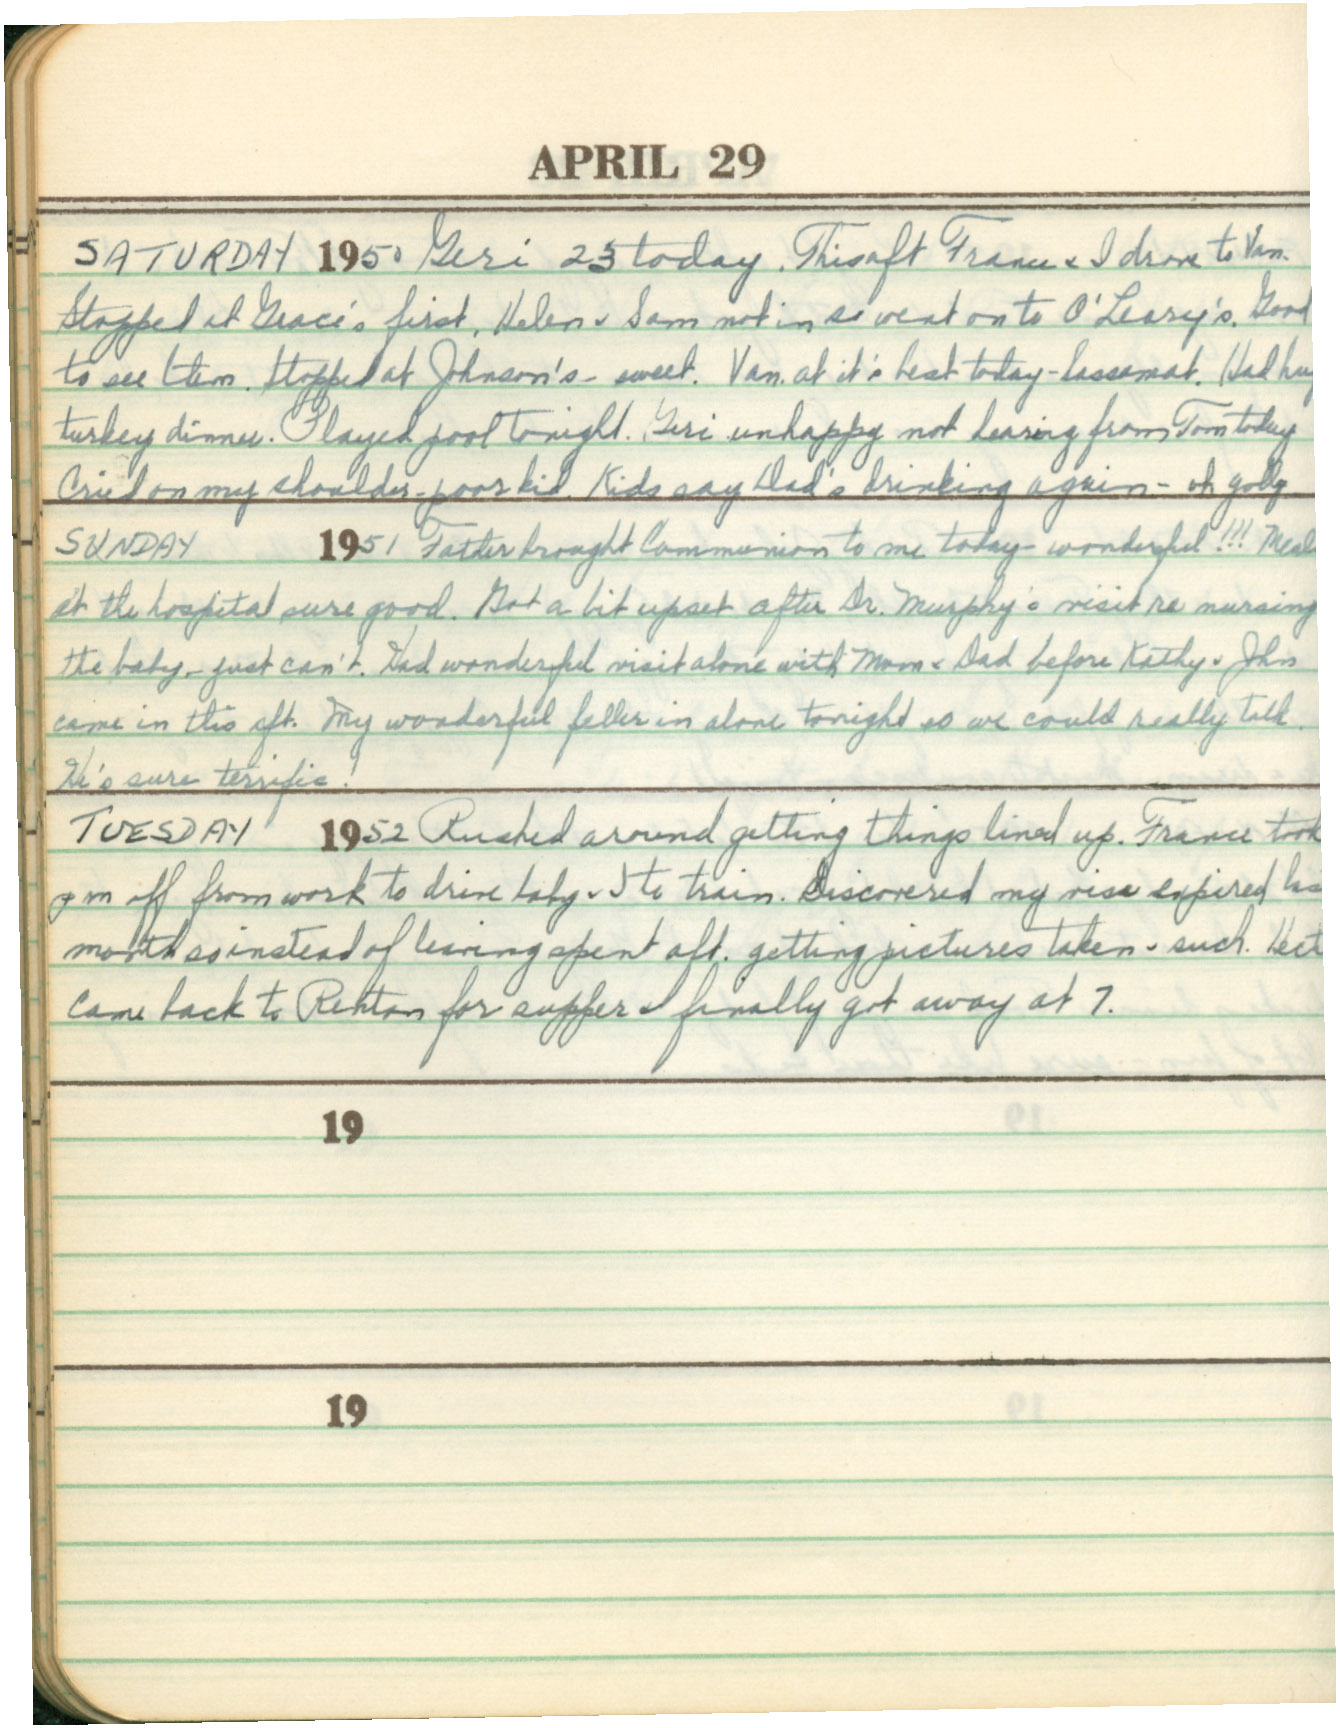 APRIL 29
SATURDAY 1950 Geri 23 today. This aft France & I drove to Van.
Stopped at Grace's first, Helen & Sam not in so went on to O'Leary's. Good
to see them. Stopped at Johnson's - sweet. Van. at it's best today - Had
turkey dinner. Played pool tonight. Geri unhappy not hearing from Tom today
Cried on my shoulder - poor kid. Kids say Dad's drinking again - oh golly
SUNDAY 1951 Father brought Communion to me today - wonderful!!! Meals
at the hospital sure good. Got a bit upset after Dr. Murphy's visit re nursing
the baby - just can't. Had wonderful visit alone with Mom & Dad before Kathy & John
came in this aft. My wonderful feller in alone tonight so we could really talk.
He's sure terrific!
TUESDAY 1952 Rushed around getting things lined up. France took
pm off from work to drive baby & I to train. Discovered my visa expired las
month so instead of leaving spent aft. getting pictures taken & such.
Came back to Renton for supper & finally got away at 7.
19
19